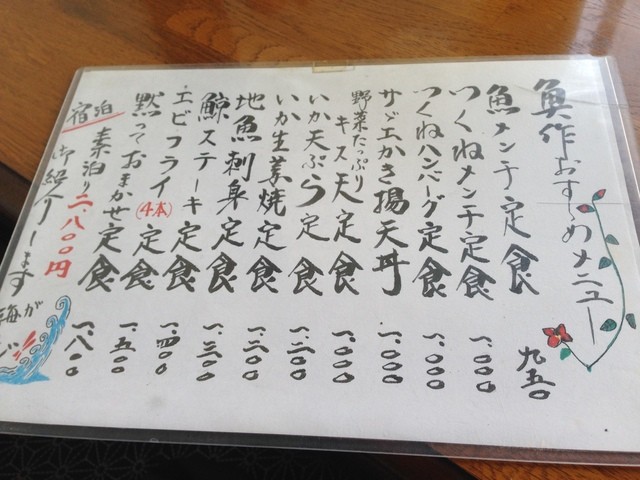 魚作おすゝめメニュー
魚メンチ定食 九五〇
つくねメンチ定食 一、〇〇〇
つくねハンバーグ定食 一、〇〇〇
サゞエかき揚天丼 一、〇〇〇
野菜たっぷり
キス天定食 一、〇〇〇
いか天ぷら定食 一、二〇〇
いか生姜焼定食 一、二〇〇
地魚刺身定食 一、三〇〇
鯨ステーキ定食 一、四〇〇
エビフライ(4本)定食 一、五〇〇
黙っておまかせ定食 一、八〇〇
宿泊 素泊り二、八〇〇円
御紹介します